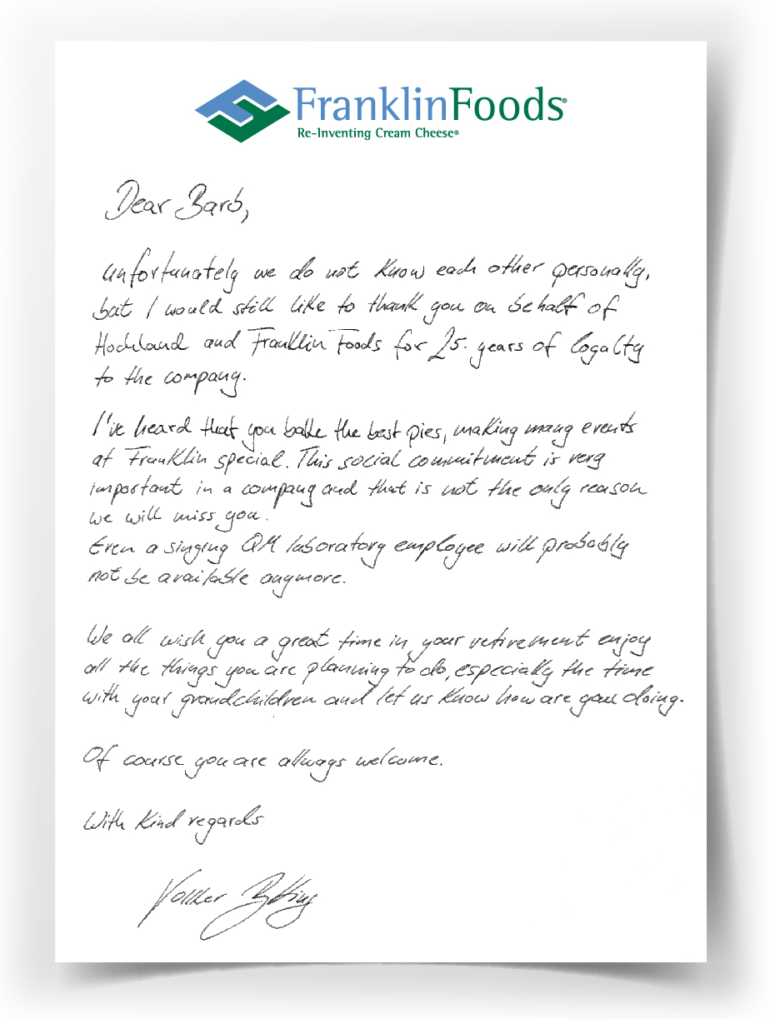 FranklinFoods®
Re-Inventing Cream Cheese®
Dear Barb,
Unfortunately we do not know each other personally,
but I would still like to thank you on behalf of
Hochland and Franklin Foods for 25. years of loyalty
to the company.
I've heard that you bake the best pies, making many events
at Franklin special. This social commitment is very
important in a company and that is not the only reason
we will miss you.
Even a singing QM laboratory employee will probably
not be available anymore.
We all wish you a great time in your retirement enjoy
all the things you are planning to do, especially the time
with your grandchildren and let us know how are you doing.
Of course you are allways welcome.
With kind regards
Volker